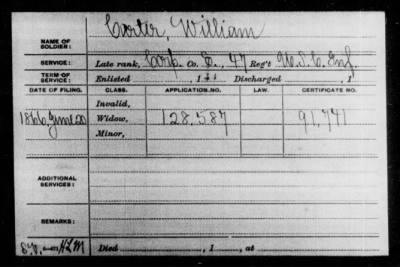 NAME OF SOLDIER: Carter, William
SERVICE: Late rank, Corp. Co. , 47 Reg't U.S.C. Inf.
TERM OF SERVICE: Enlisted , 1 Discharged , 1
DATE OF FILING. CLASS. APPLICATION NO. LAW. CERTIFICATE NO.
Invalid,
1866 June 20 Widow, 128,587 91,741
Minor,
ADDITIONAL SERVICES:
REMARKS:
Died , 1 , at